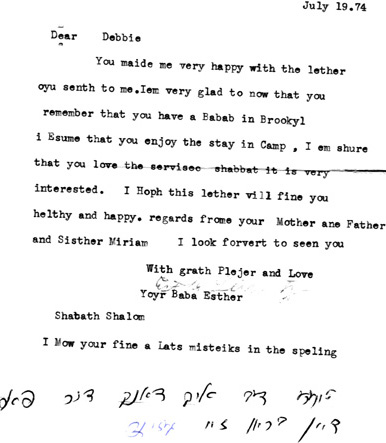 July 19.74
Dear Debbie
You maide me very happy with the lether
oyu senth to me.Iem very glad to now that you
remember that you have a Babab in Brookyl
i Esume that you enjoy the stay in Camp , I em shure
that you love the servisec shabbat it is very
interested. I Hoph this lether vill fine you
helthy and happy. regards frome your Mother ane Father
and Sisther Miriam I look forvert to seen you
With grath Plejer and Love
Yoyr Baba Esther
Shabath Shalom
I Mow your fine a Lats misteiks in the speling
דיר איך דאנק דיר
דיין זיי